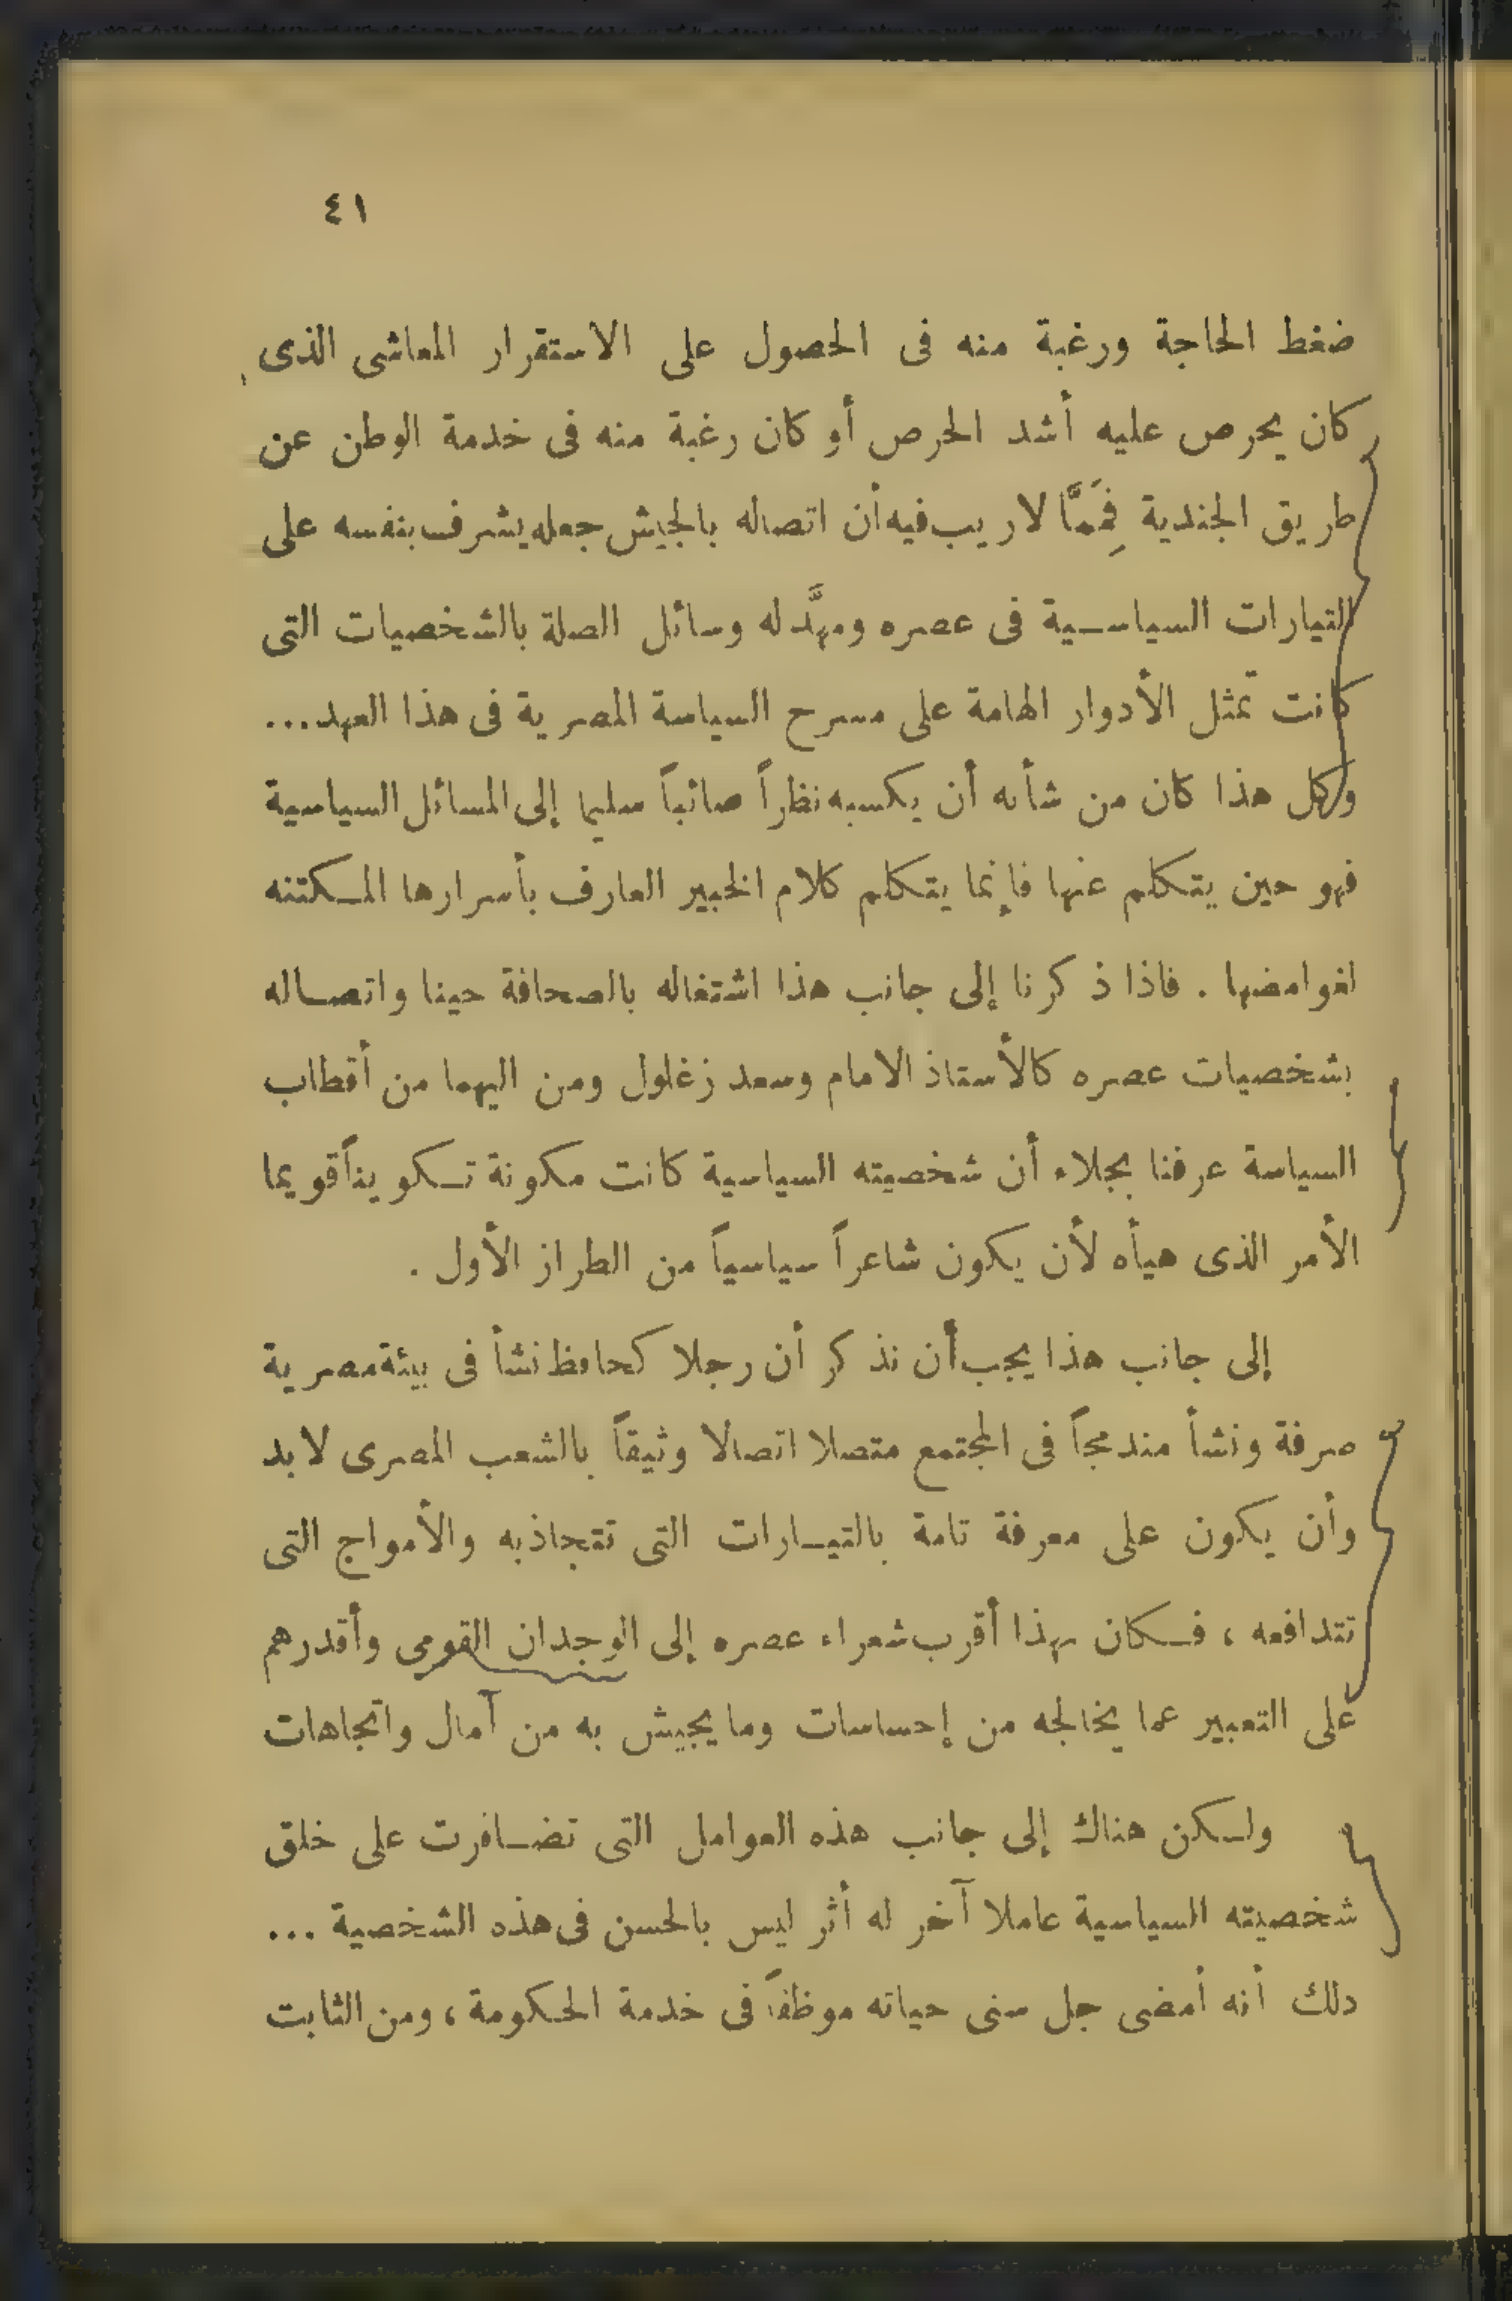 ٤١
ضغط الحاجة ورغبة منه فى الحصول على الاستقرار المعاشى الذى
كان يحرص عليه أشد الحرص أو كان رغبة منه فى خدمة الوطن عن
طريق الجندية فِمَمَّا لاريب فيه أن اتصاله بالجيش جعله يشرف بنفسه على
التيارات السياسية فى عصره ومهَّد له وسائل الصلة بالشخصيات التى
كانت تمثل الأدوار الهامة على مسرح السياسة المصرية فى هذا العهد...
وكل هذا كان من شأنه أن يكسبه نظراً صائباً سليما إلى المسائل السياسية
فهو حين يتكلم عنها فإنما يتكلم كلام الخبير العارف بأسرارها المكتنه
لغوامضها . فاذا ذكرنا إلى جانب هذا اشتغاله بالصحافة حينا واتصاله
بشخصيات عصره كالأستاذ الامام وسعد زغلول ومن اليهما من أقطاب
السياسة عرفنا بجلاء أن شخصيته السياسية كانت مكونة تكويناً قويما
الأمر الذى هيأه لأن يكون شاعراً سياسياً من الطراز الأول .
إلى جانب هذا يجب أن نذكر أن رجلا كحافظ نشأ فى بيئة مصرية
صرفة ونشأ مندمجاً فى المجتمع متصلا اتصالا وثيقاً بالشعب المصرى لابد
وأن يكون على معرفة تامة بالتيارات التى تتجاذبه والأمواج التى
تتدافعه ، فكان بهذا أقرب شعراء عصره إلى الوجدان القومى وأقدرهم
على التعبير عما يخالجه من إحساسات وما يجيش به من آمال واتجاهات
ولكن هناك إلى جانب هذه العوامل التى تضافرت على خلق
شخصيته السياسية عاملا آخر له أثر ليس بالحسن فى هذه الشخصية ...
دلك أنه أمضى جل سنى حياته موظفاً فى خدمة الحكومة ، ومن الثابت